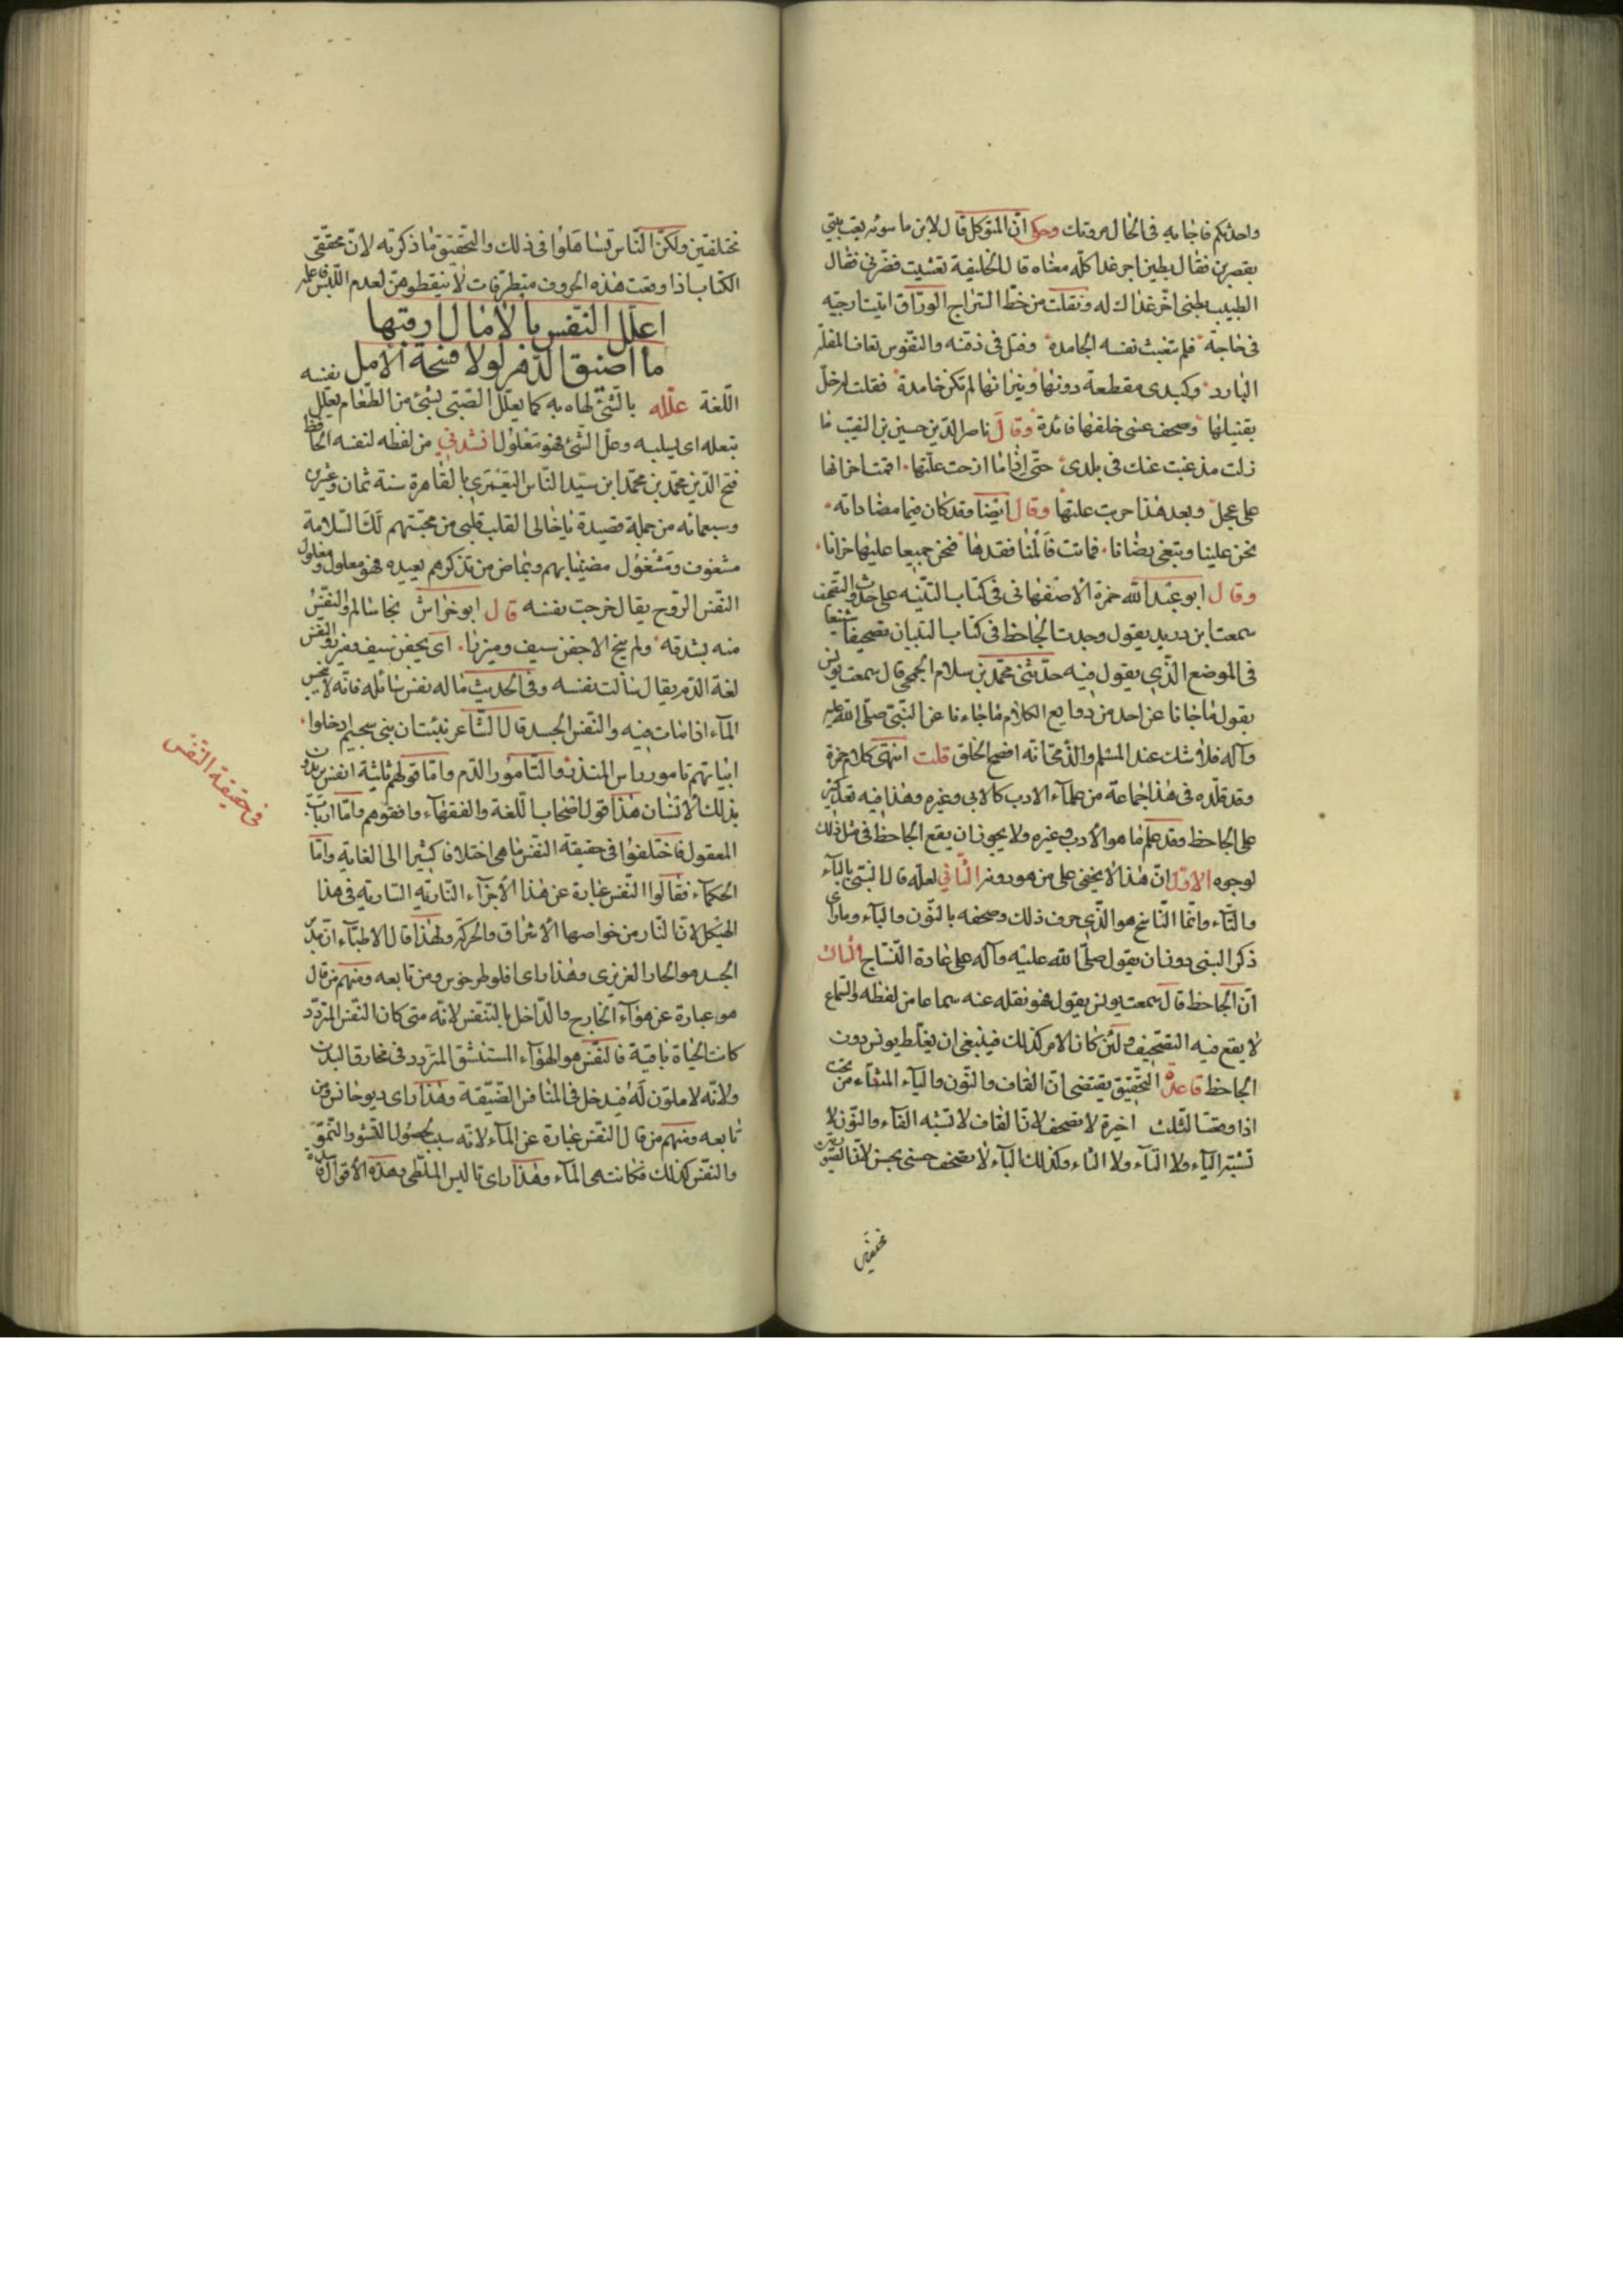 واحدثكم فاجابه فى الحال مروتك وحكى ان المتوكل قال لابن ماسويه بعت بيتى
بقصرين فقال الطبيب اخر غداك له ونقلت من خط السراج الوراق اتيت ارجيه
فى حاجة فلم تنبعث نفسه الجامدة وفتل فى ذقنه والنفوس تعاف المفتلة
الباردة وكبدى مقطعة دونها ونيرانها لم تكن خامدة فقلت ارحل
بقتيلها وصحف عسى خلفها فائدة وقال ناصر الدين حسين بن النقيب ما
زلت مذ غبت عنك فى بلدى حتى اذا ما ازحت علتها اقمت اجرانها
على عجل وبعد هذا جربت علتها وقال ايضا وقد كان فيما مضى داته
نحن علينا ويتغى رضانا فماتت فآلمنا فقدها فنحن جميعا عليها حزانا
وقال ابو عبد الله حمزة الاصفهانى فى كتاب التنبيه على حدوث التصحيف
سمعت ابن دريد يقول وجدت للجاحظ فى كتاب البيان تصحيفا شنيعا
فى الموضع الذى يقول فيه حدثنى محمد بن سلام الجمحى قال سمعت يونس
يقول ما جاءنا عن احد من روايع الكلام ما جاءنا عن النبى صلى الله عليه
وآله فلا شك عند المسلم والذمى انه افصح الخلق قلت انتهى كلام حمزة
وقد قلده فى هذا جماعة من علماء الادب كالابى وغيره وهذا فيه تعد كثير
على الجاحظ وقد علم ما هو الادب وغيره ولا يجوز ان يقع الجاحظ فى مثل ذلك
لوجوه الاول ان هذا لا يخفى على من هو دونه الثانى لعله قال البتى بالباء
والتاء وانما الناسخ هو الذى حرف ذلك وصحفه بالنون والباء وما رأى
ذكر النبى دون ان يقول صلى الله عليه وآله على عادة النساخ الثالث
ان الجاحظ قال سمعت يونس يقول فهو نقله عنه سماعا من لفظه والسماع
لا يقع فيه التصحيف ولئن كان الامر كذلك فينبغى ان يغلط يونس دون
الجاحظ قاعدة التحقيق يقتضى ان القاف والنون والياء المثناة من تحت
اذا وقعت الثلث اخيرة لا تصحف لان القاف لا تشبه الفاء والنون لا
تشبه الباء ولا التاء ولا الثاء وكذلك الياء لا يصحف حسنى بحسن لان الصورتين
مختلفتين
مختلفتين ولكن الناس تساهلوا فى ذلك والتحقيق ما ذكرته لان محققى
الكتاب اذا وقعت هذه الحروف متطرفات لا ينقطوهن لعدم اللبس فاعلم
اعلل النفس بالامال ارقبها
ما اضيق الدهر لولا فسحة الامل
اللغة علله بالشئ لهاه به كما يعلل الصبى بشئ من الطعام يعلل نفسه
بتعله اى يسليه وعل الشئ فهو معلول انشدنى من لفظه لنفسه الحافظ
فتح الدين محمد بن محمد ابن سيد الناس اليعمرى بالقاهرة سنة ثمان وعشرين
وسبعمائة من جملة قصيدة يا خالى القلب قلبى من محبتهم لك السلامة
مشغوف ومشغول مضنى بهم وبماض من تذكرهم يعيده فهو معلول ومعلول
النفس الروح يقال خرجت نفسه قال ابو خراش نجا سالم والنفس
منه بشدقه ولم ينج الا جفن سيف وميزرا اى بجفن سيف وميزر والنفس
لغة الدم يقال سالت نفسه وفى الحديث ما له نفس سائله فانه لا ينجس
الماء اذا مات فيه والنفس الجسد قال الشاعر نبئت ان بنى سحيم ادخلوا
ابياتهم تامور راس المنذر والتامور الدم واما قولهم ثلثة انفس يريدون
بذلك الانسان هذا قول اصحاب اللغة والفقهاء وافقوهم واما ارباب
المعقول فاختلفوا فى حقيقة النفس ما هى اختلافا كثيرا الى الغاية واما
الحكماء فقالوا النفس عبارة عن هذا الاجزاء الناريه السارية فى هذا
الهيكل لان النار من خواصها الاشراق والحركة ولهذا قال الاطباء ان مدبر
الجسد هو الحار الغريزى وهذا راى افلوطرخوس ومن تابعه ومنهم من قال
هو عبارة عن هواء الخارج والداخل بالتنفس لانه متى كان النفس المتردد
كانت الحياة باقية فالنفس هو الهواء المستنشق المتردد فى مخارق البدن
ولانه لا ملون له فيدخل فى المنافس الضيقة وهذا راى ديوجانس ومن
تابعه ومنهم من قال النفس عبارة عن الماء لانه سبب لحصول النشو والنمو
والنفس كذلك فكانت هى الماء وهذا راى تاليس الملطى وهذه الاقوال
فى حقيقة النفس